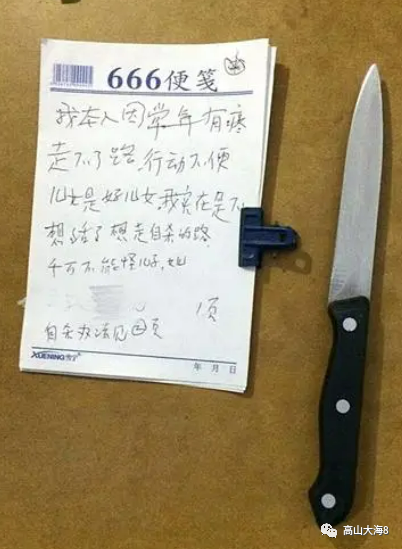 666便笺
我本人因常年有疼
走不了路 行动不便
儿女是好儿女 我实在是不
想活了 想走自杀的路
千万不能怪儿子,
1页
自杀办法见②页
XUENING
年 月 日
高山大海8